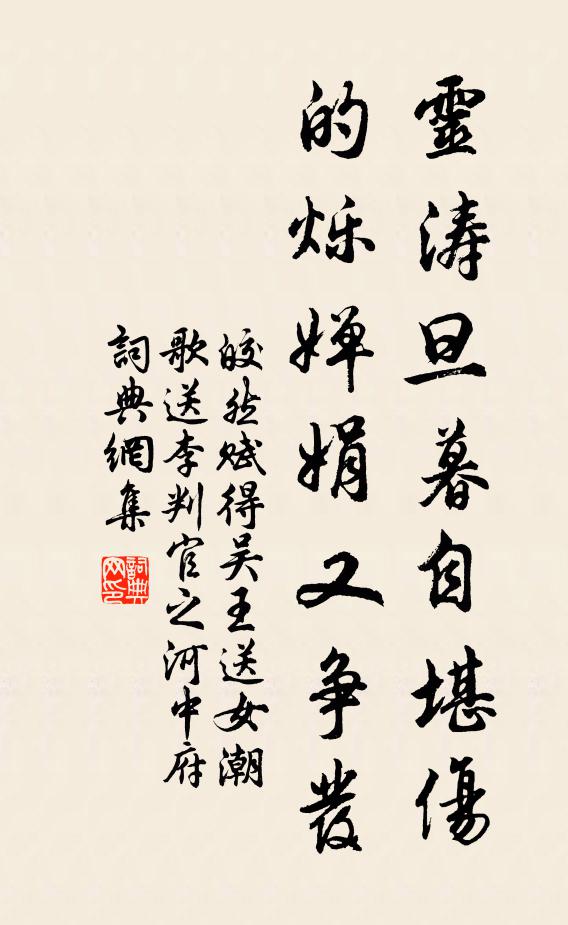 靈涛旦暮自堪傷
的烁婵娟又争發
皎然赋得吴王送女潮
歌送李判官之河中府
詞典網集
詞典网印